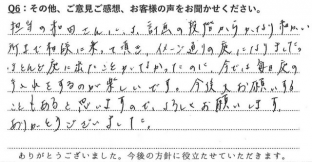 Q6：その他、ご意見ご感想、お客様の声をお聞かせください。
担当の和田さんには、計画の段階からかなり細かい
所まで相談に乗って頂き、イメージ通りの庭になりました。
ほとんど庭に出たことがなかったのに、今では毎日庭の
手入れをするのが楽しいです。今後もお願いする
こともあると思いますので、よろしくお願いします。
ありがとうございました。
ありがとうございました。今後の方針に役立たせていただきます。